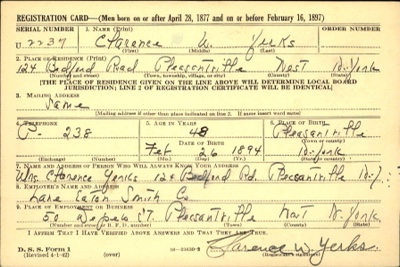 REGISTRATION CARD—(Men born on or after April 28, 1877 and on or before February 16, 1897)
SERIAL NUMBER 1. NAME (Print) ORDER NUMBER
U 2237 Clarence W. Yerks
(First) (Middle) (Last)
2. PLACE OF RESIDENCE (Print)
124 Bedford Road Pleasantville West N-York
(Number and street) (Town, township, village, or city) (County) (State)
[THE PLACE OF RESIDENCE GIVEN ON THE LINE ABOVE WILL DETERMINE LOCAL BOARD
JURISDICTION; LINE 2 OF REGISTRATION CERTIFICATE WILL BE IDENTICAL]
3. MAILING ADDRESS
Same
[Mailing address if other than place indicated on line 2. If same insert word same]
4. TELEPHONE 5. AGE IN YEARS 6. PLACE OF BIRTH
P- 238 48 Pleasantville
DATE OF BIRTH (Town or county)
Feb 26 1894 N-York
(Exchange) (Number) (Mo.) (Day) (Yr.) (State or country)
7. NAME AND ADDRESS OF PERSON WHO WILL ALWAYS KNOW YOUR ADDRESS
Mrs Clarence Yerks 124 Bedford Rd. Pleasantville N-Y.
8. EMPLOYER'S NAME AND ADDRESS
Lane Eaton Smith Co
9. PLACE OF EMPLOYMENT OR BUSINESS
50 St. Pleasantville West N-York
(Number and street or R. F. D. number) (Town) (County) (State)
I AFFIRM THAT I HAVE VERIFIED ABOVE ANSWERS AND THAT THEY ARE TRUE.
D. S. S. Form 1
(Revised 4-1-42) (over) Clarence W. Yerks
(Registrant's signature)